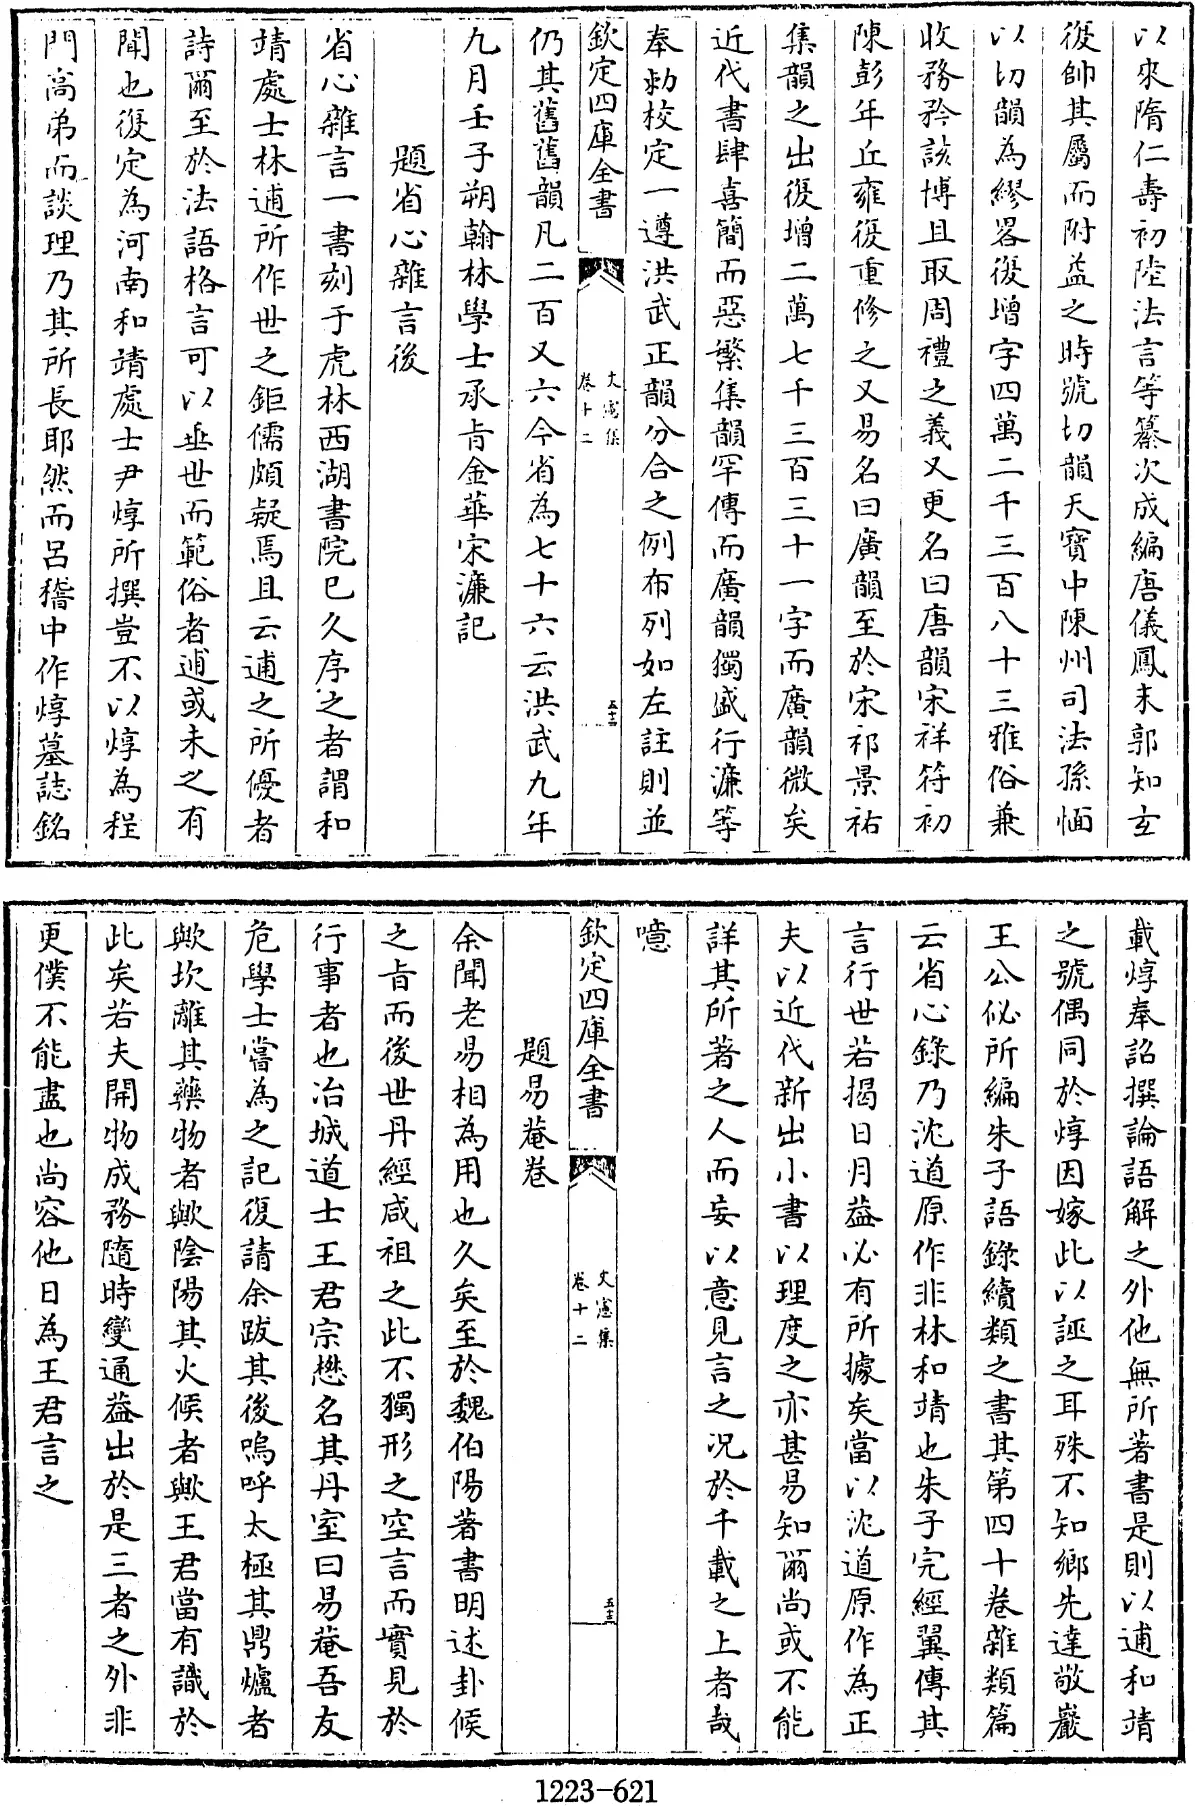 以來隋仁壽初陸法言等纂次成編唐儀鳳末郭知玄
復帥其屬而附益之時號切韻天寶中陳州司法孫愐
以切韻為繆畧復增字四萬二千三百八十三雅俗兼
收務矜該博且取周禮之義又更名曰唐韻宋祥符初
陳彭年丘雍復重修之又易名曰廣韻至於宋祁景祐
集韻之出復增二萬七千三百三十一字而廣韻微矣
近代書肆喜簡而惡繁集韻罕傳而廣韻獨盛行濂等
奉勅校定一遵洪武正韻分合之例布列如左註則並
欽定四庫全書
文憲集
卷十二
五十二
仍其舊舊韻凡二百又六今省為七十六云洪武九年
九月壬子朔翰林學士承㫖金華宋濂記
題省心雜言後
省心雜言一書刻于虎林西湖書院已久序之者謂和
靖處士林逋所作世之鉅儒頗疑焉且云逋之所優者
詩爾至於法語格言可以垂世而範俗者逋或未之有
聞也復定為河南和靖處士尹焞所撰豈不以焞為程
門高弟而談理乃其所長耶然而呂稽中作焞墓誌銘
載焞奉詔撰論語解之外他無所著書是則以逋和靖
之號偶同於焞因嫁此以誣之耳殊不知鄉先達敬巖
王公佖所編朱子語錄續類之書其第四十卷雜類篇
云省心錄乃沈道原作非林和靖也朱子完經翼傳其
言行世若揭日月葢必有所據矣當以沈道原作為正
夫以近代新出小書以理度之亦甚易知爾尚或不能
詳其所著之人而妄以意見言之况於千載之上者哉
噫
欽定四庫全書
文憲集
卷十二
五十三
題易菴卷
余聞老易相為用也久矣至於魏伯陽著書明述卦候
之㫖而後世丹經咸祖之此不獨形之空言而實見於
行事者也冶城道士王君宗懋名其丹室曰易菴吾友
危學士嘗為之記復請余跋其後嗚呼太極其鼎爐者
歟坎離其藥物者歟陰陽其火候者歟王君當有識於
此矣若夫開物成務隨時變通葢出於是三者之外非
更僕不能盡也尚容他日為王君言之
1223-621